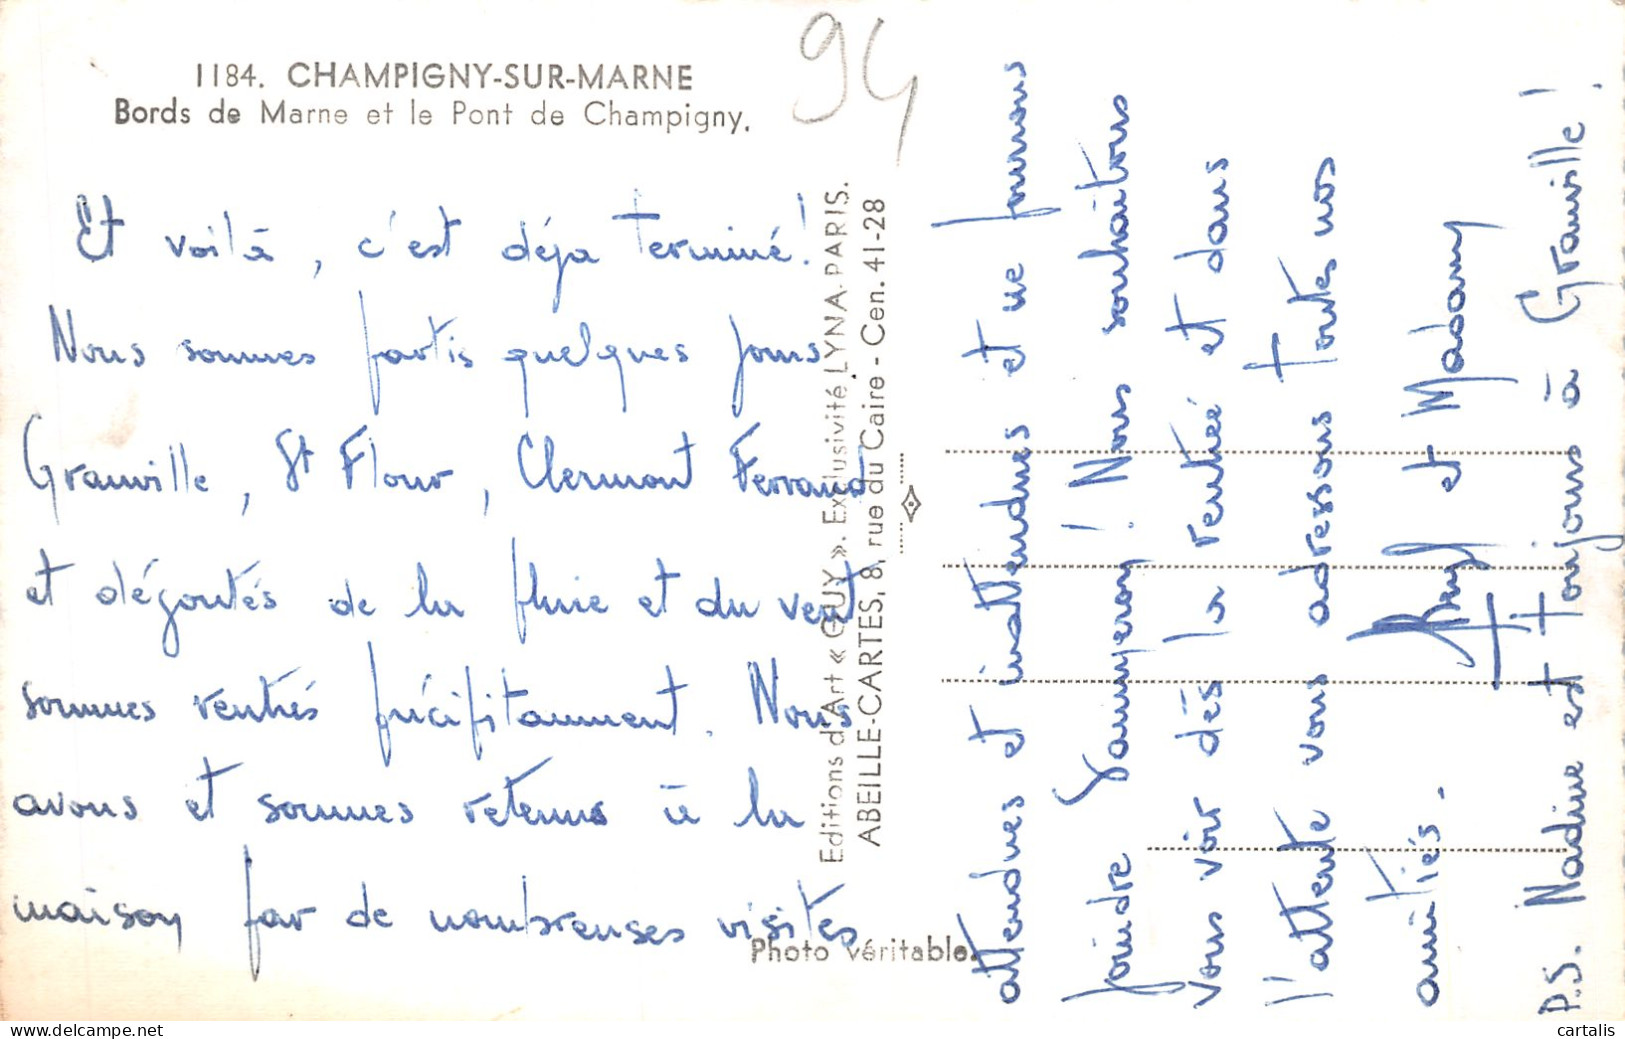 1184. CHAMPIGNY-SUR-MARNE
Bords de Marne et le Pont de Champigny.
94
Et voilà, c'est déja terminé!
Nous sommes partis quelques jours
Granville, St Flour, Clermont Ferrand
et dégoutés de la pluie et du vent
sommes rentrés précipitamment. Nous
avons et sommes retenus à la
maison par de nombreuses visites
Editions d'Art « GUY ». Exclusivité LYNA-PARIS.
ABEILLE-CARTES, 8, rue du Caire - Cen. 41-28
Photo véritable.
attendues et inattendues et ne pouvons
joindre ! Nous souhaitons
vous voir dès la rentrée et dans
l'attente vous adressons toutes nos
amitiés. - et
P.S. Nadine est toujours à Granville !
cartalis